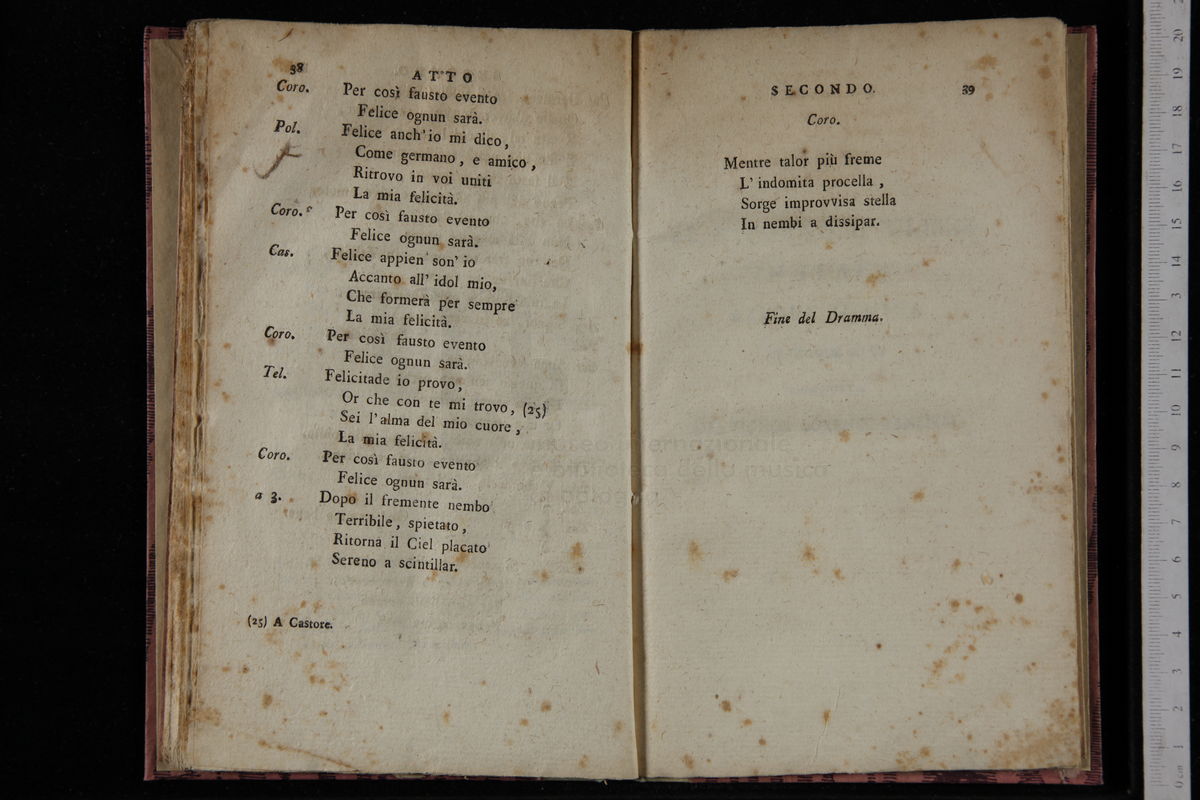 38
ATTO
Coro. Per così fausto evento
Felice ognun sarà.
Pol. Felice anch'io mi dico,
Come germano, e amico,
Ritrovo in voi uniti
La mia felicità.
Coro. Per così fausto evento
Felice ognun sarà.
Cas. Felice appien son' io
Accanto all' idol mio,
Che formerà per sempre
La mia felicità.
Coro. Per così fausto evento
Felice ognun sarà.
Tel. Felicitade io provo,
Or che con te mi trovo, (25)
Sei l'alma del mio cuore,
La mia felicità.
Coro. Per così fausto evento
Felice ognun sarà.
a 3. Dopo il fremente nembo
Terribile, spietato,
Ritorna il Ciel placato
Sereno a scintillar.
(25) A Castore.
SECONDO. 39
Coro.
Mentre talor più freme
L' indomita procella,
Sorge improvvisa stella
In nembi a dissipar.
Fine del Dramma.
museo internazionale
e biblioteca della musica
di bologna
0 cm 1 2 3 4 5 6 7 8 9 10 11 12 13 14 15 16 17 18 19 20